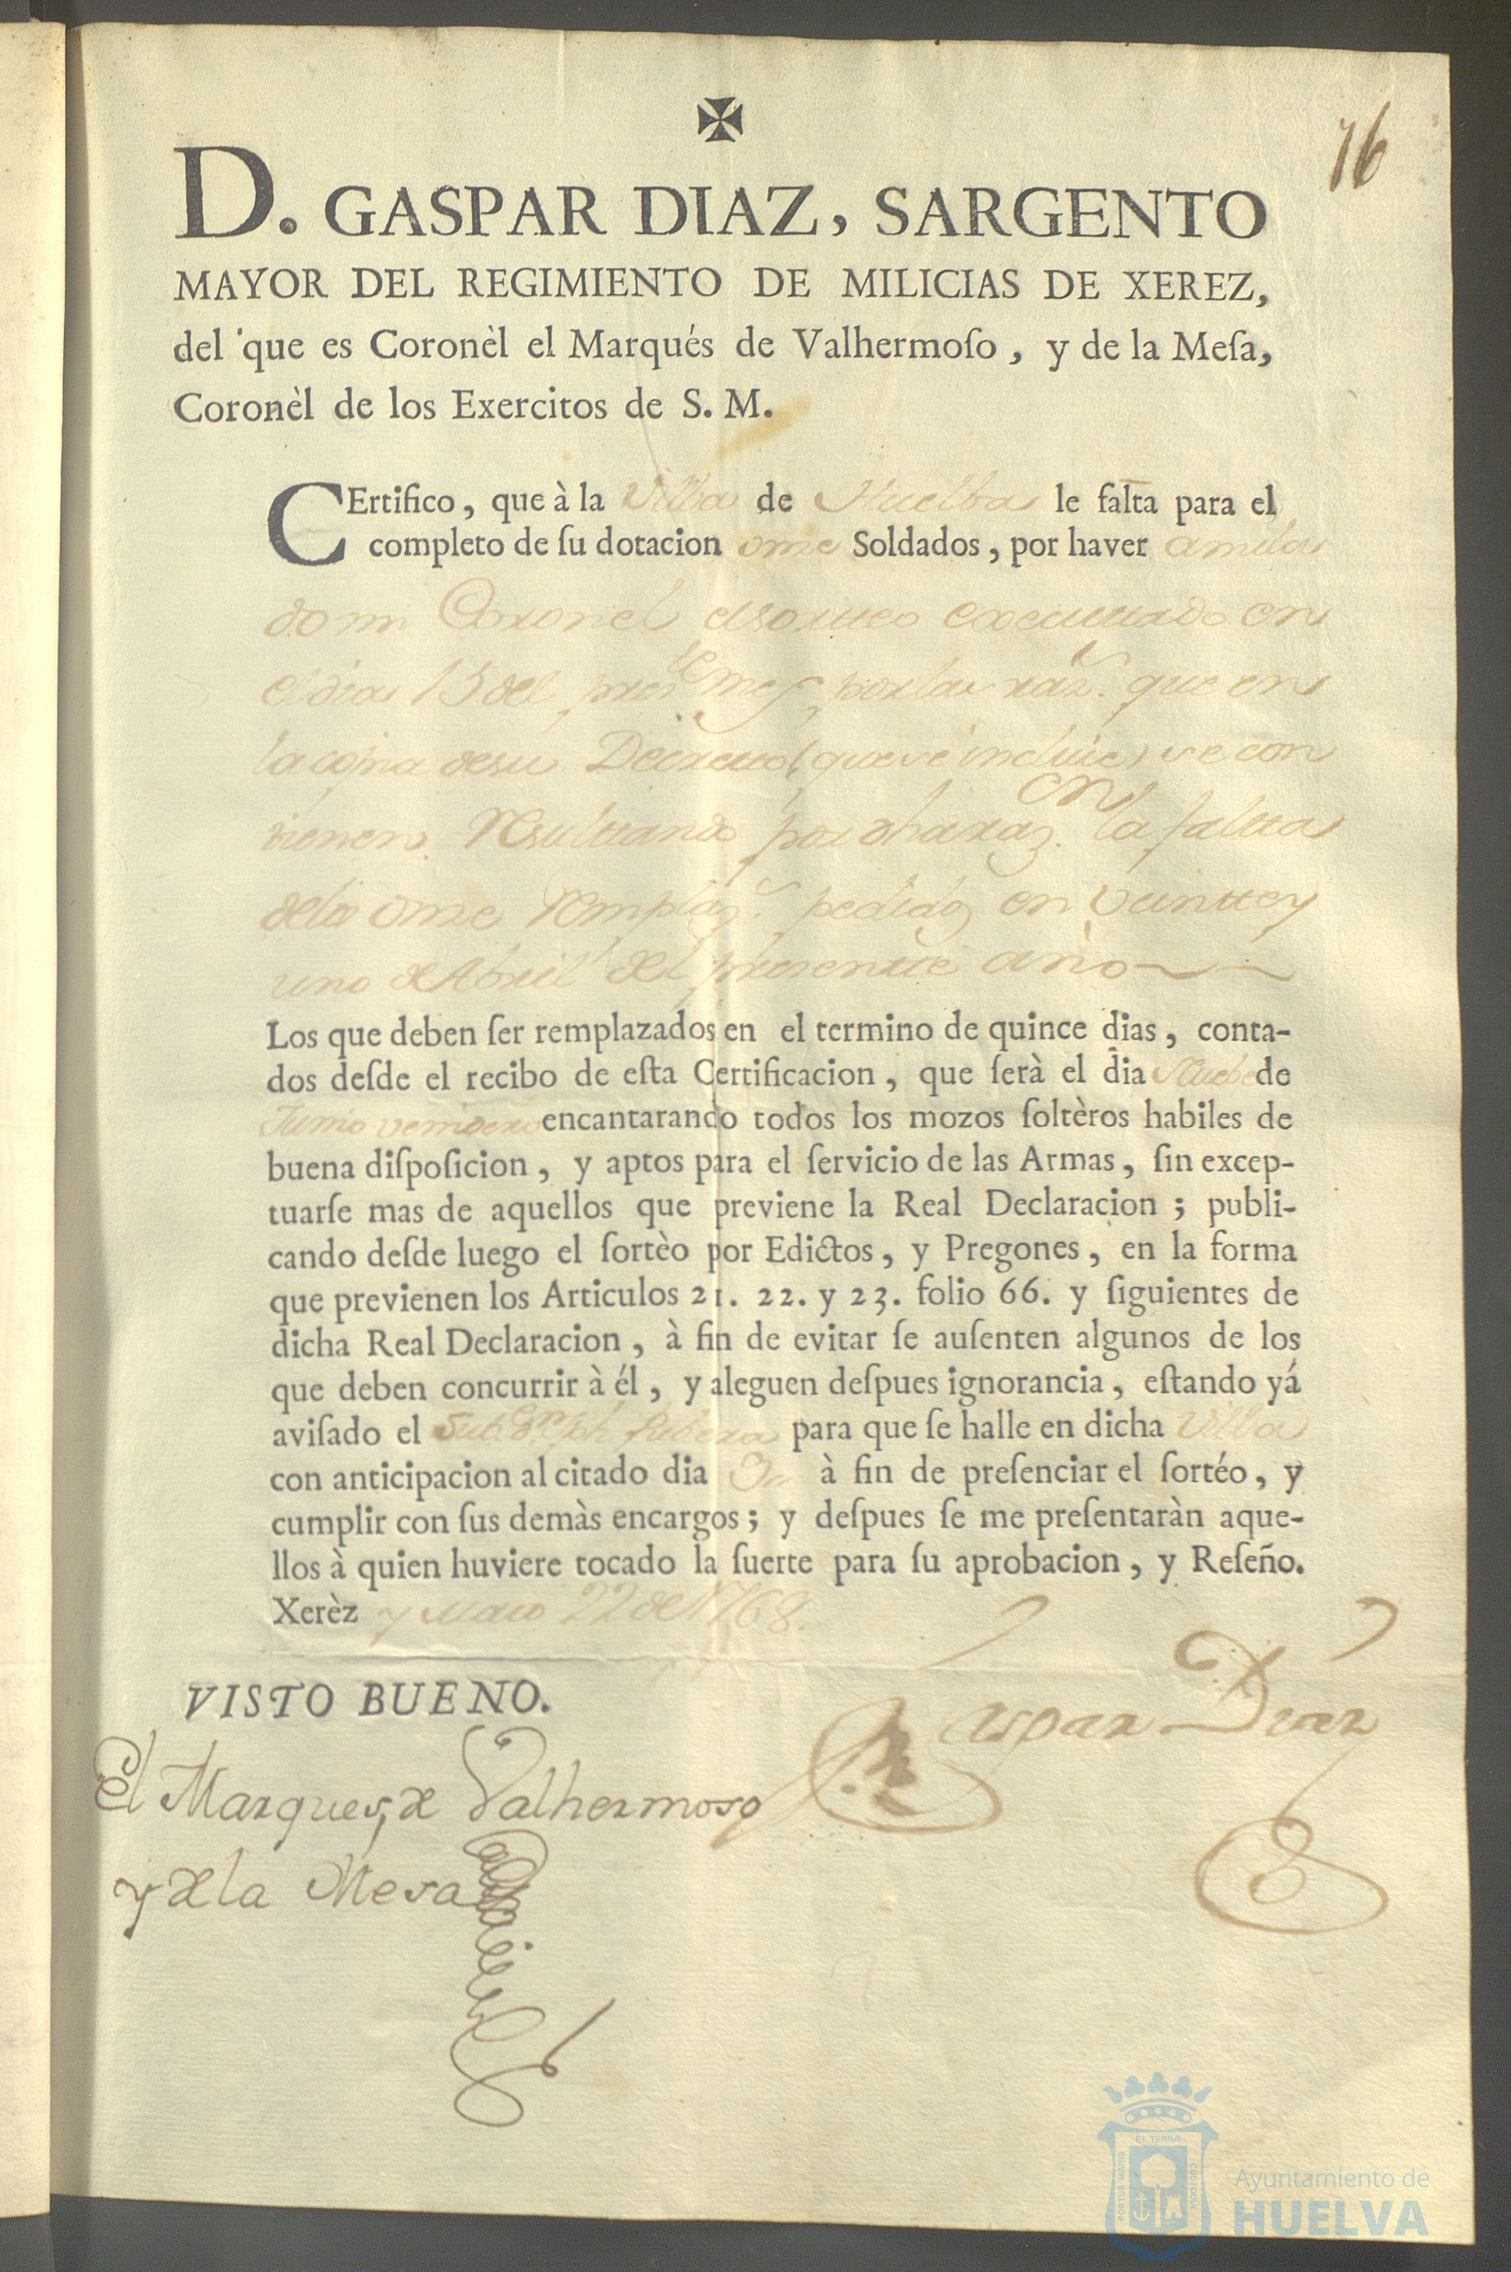 16
D. GASPAR DIAZ, SARGENTO
MAYOR DEL REGIMIENTO DE MILICIAS DE XEREZ,
del que es Coronèl el Marqués de Valhermoſo, y de la Meſa,
Coronèl de los Exercitos de S. M.
CErtifico, que à la Villa de Huelba le falta para el
completo de ſu dotacion onze Soldados, por haver anula
do mi Coronel el sorteo executtado en
el dia 15 del pres.te mes por las raz.s que en
la copia de su Decretto (que se incluie) se con
tienen. Resulttando por dha raz.n en la faltta
de los onze Remplaz.s pedidos en veintte y
uno de Abril del presentte año
Los que deben ſer remplazados en el termino de quince dias, conta-
dos deſde el recibo de eſta Certificacion, que ſerà el dia Nuebe de
Junio venidero encantarando todos los mozos ſoltèros habiles de
buena diſpoſicion, y aptos para el ſervicio de las Armas, ſin excep-
tuarſe mas de aquellos que previene la Real Declaracion; publi-
cando deſde luego el ſortèo por Edictos, y Pregones, en la forma
que previenen los Articulos 21. 22. y 23. folio 66. y ſiguientes de
dicha Real Declaracion, à fin de evitar ſe auſenten algunos de los
que deben concurrir à él, y aleguen deſpues ignorancia, eſtando yá
aviſado el Sub. Dn. Jph Ribera para que ſe halle en dicha Villa
con anticipacion al citado dia 9 à fin de preſenciar el ſortéo, y
cumplir con ſus demàs encargos; y deſpues ſe me preſentaràn aque-
llos à quien huviere tocado la ſuerte para ſu aprobacion, y Reſeño.
Xerèz y Maio 22 de 1768.
VISTO BUENO.
Gaspar Diaz
El Marques, de Valhermoso
y de la Mesa
PORTUS MARIS
ET TERRÆ
CUSTODIA
Ayuntamiento de
HUELVA